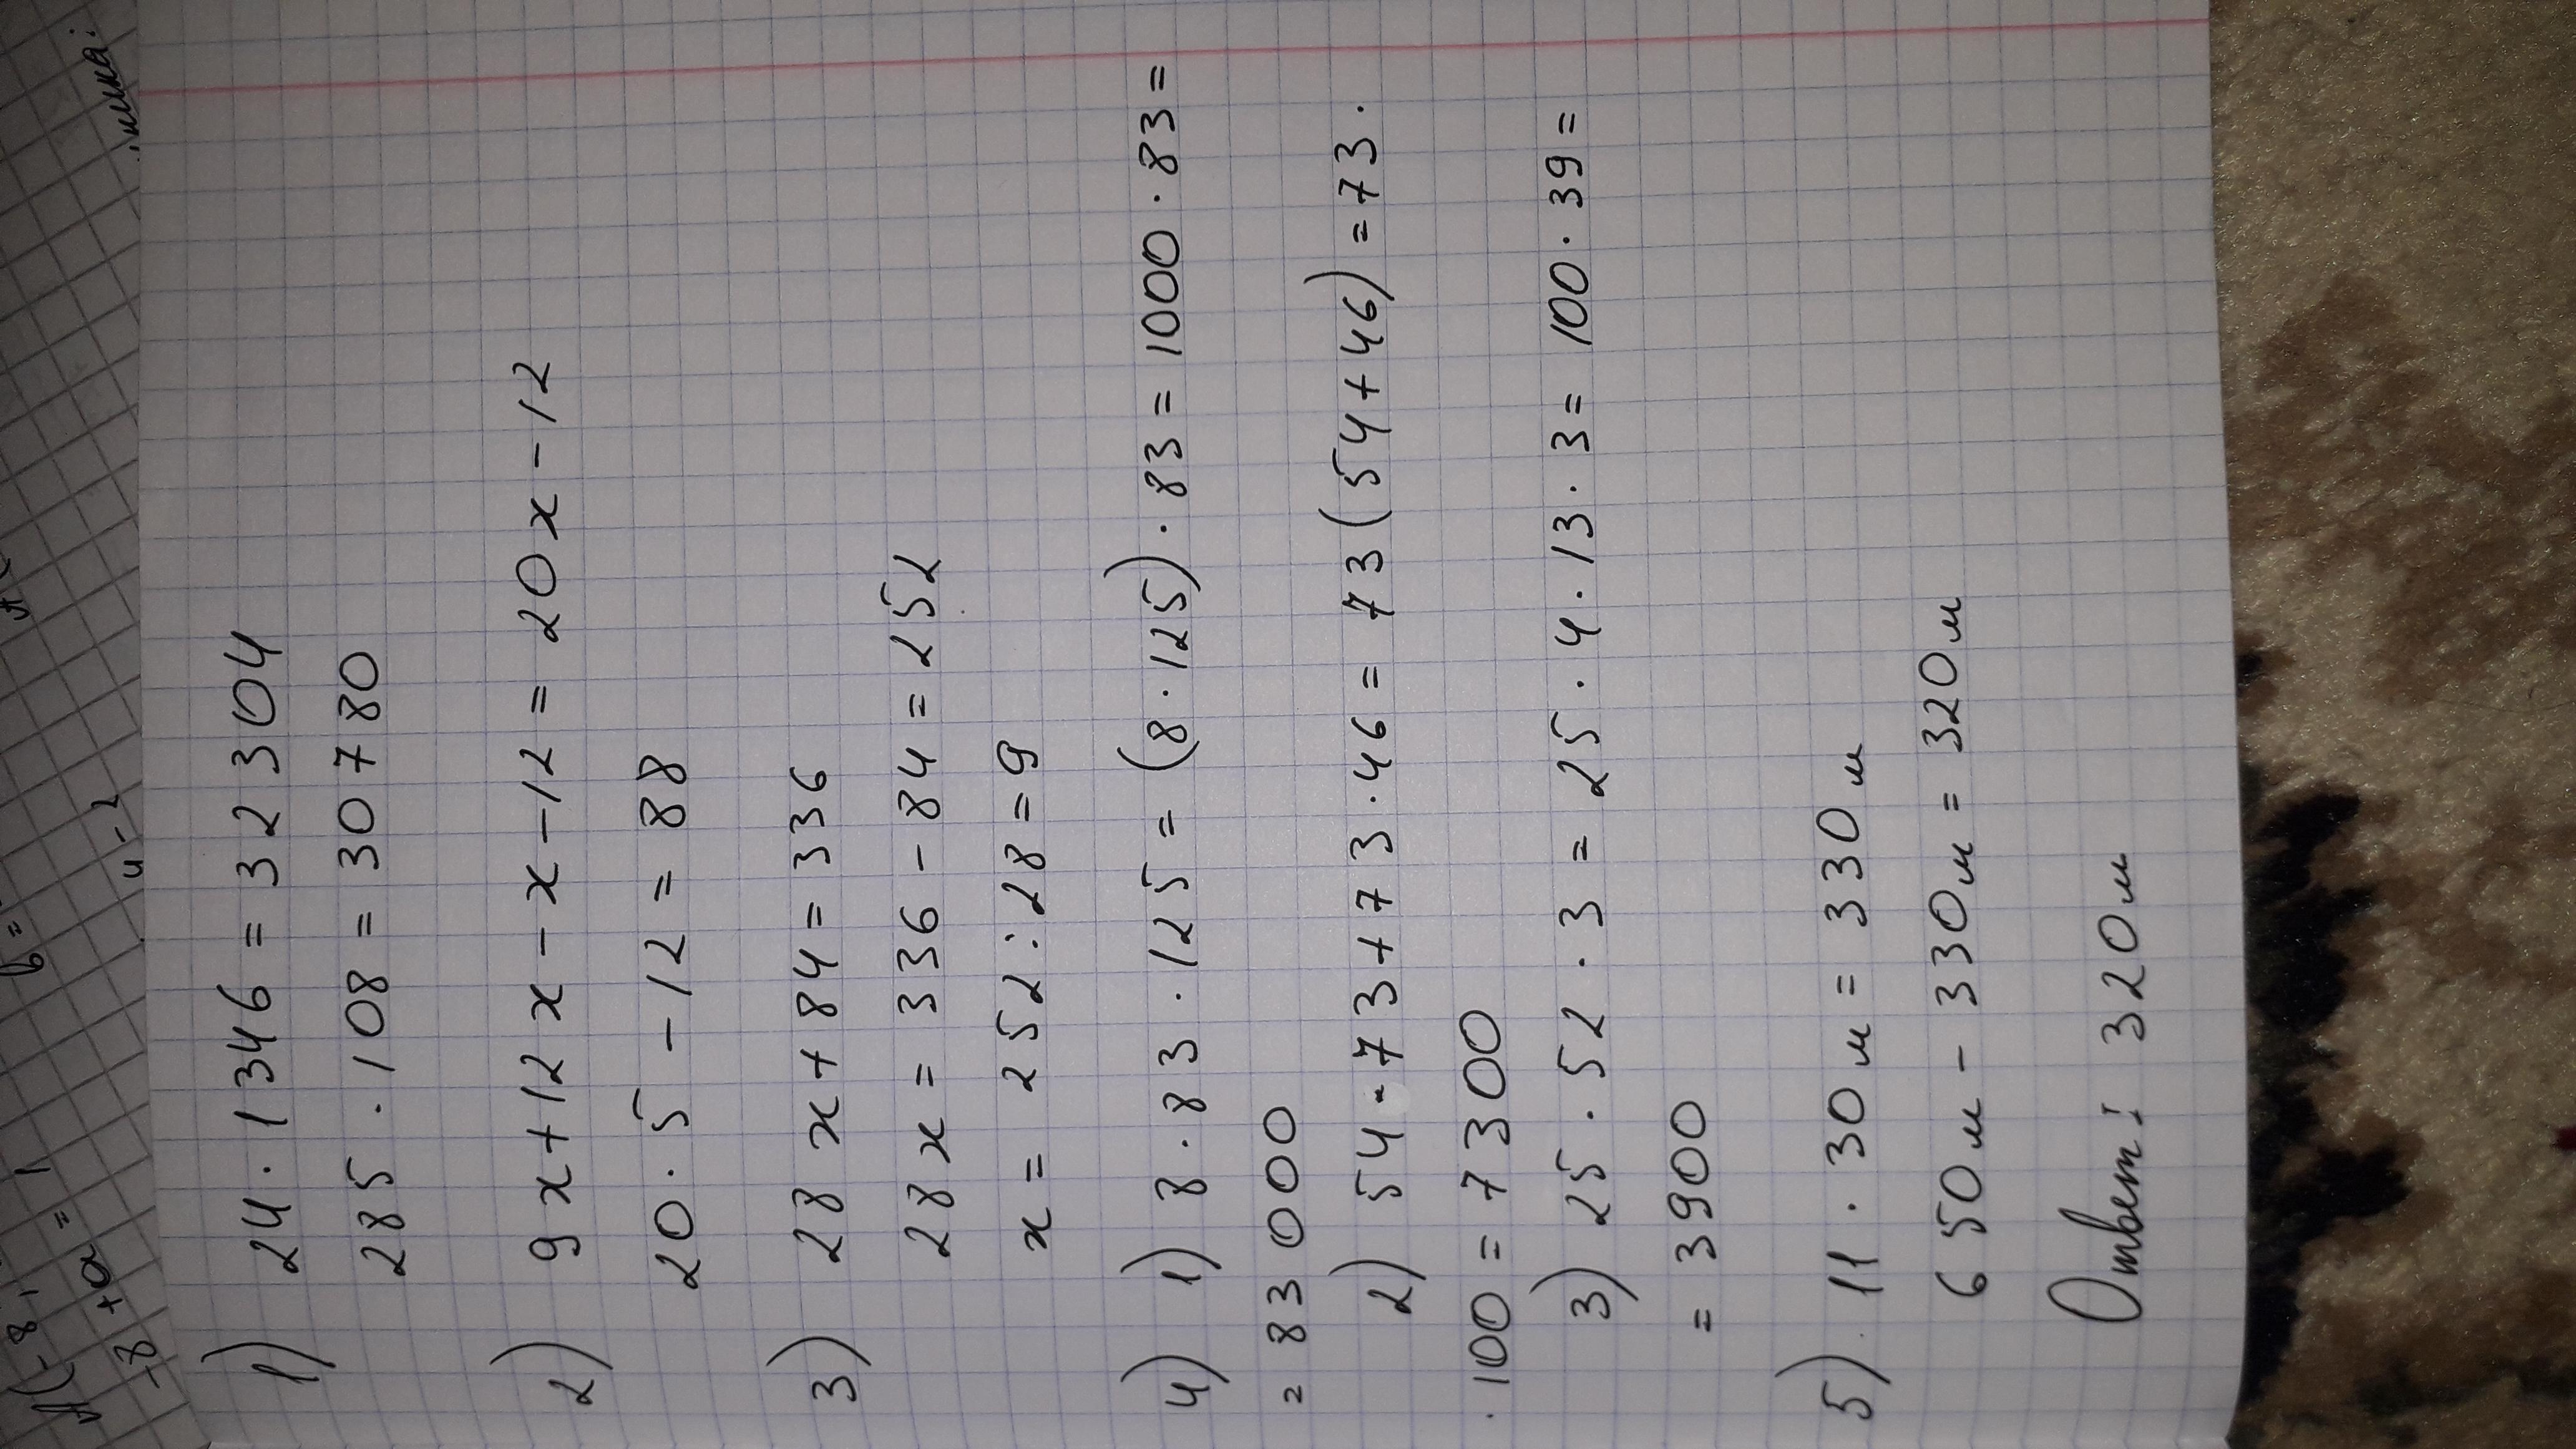 1) 24 · 1346 = 32304
285 · 108 = 30780
2) 9x+12x-x-12 = 20x-12
20 · 5 - 12 = 88
3) 28x+84=336
28x = 336-84=252
x = 252:28=9
4) 1) 8·83·125 = (8·125)·83=1000·83=
= 83000
2) 54·73+73·46=73(54+46)=73·
·100=7300
3) 25·52·3=25·4·13·3=100·39=
=3900
5) 11·30м=330м
650м-330м=320м
Ответ: 320м
A(-8;
-8+a=1
в=